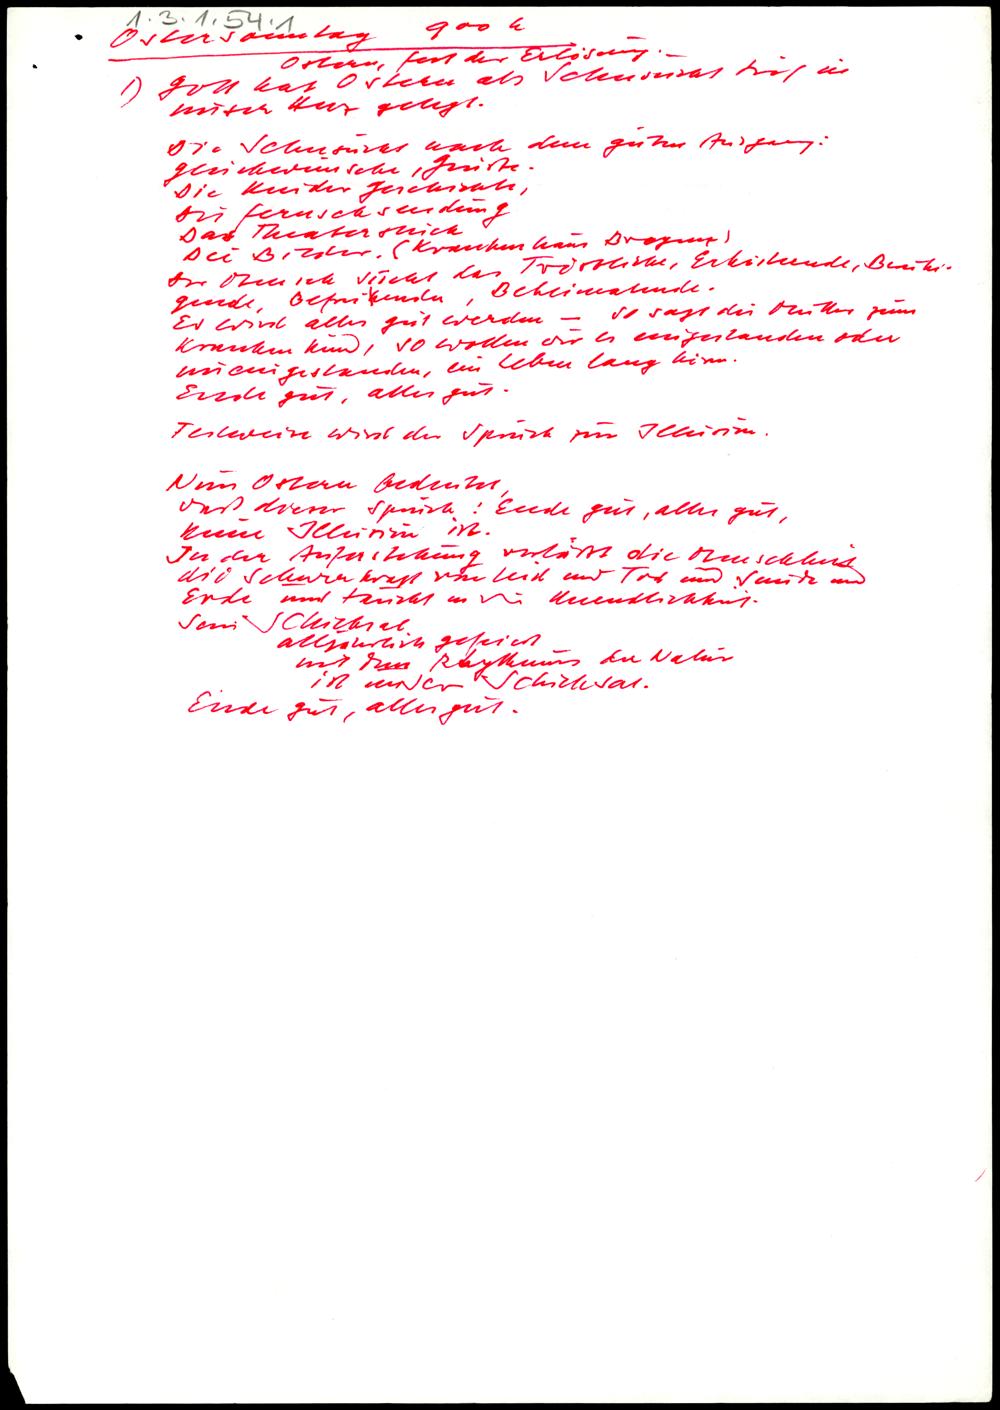 1.3.1.54.1
Ostersonntag 900 h
Ostern, Fest der Erlösung.
1) Gott hat Ostern als Sehnsucht tief in
unser Herz gelegt.
Die Sehnsucht nach dem guten Ausgang:
Glückwünsche, Grüße.
Die Kindergeschichte,
Die Fernsehsendung
Das Theaterstück
Die Bilder. (Krankenhaus
Der Mensch sucht das Tröstliche, Erheiternde, Beruhi-
gende, Beheimatende.
Es wird alles gut werden – so sagt die Mutter zum
kranken Kind, so wollen wir es eingestanden oder
uneingestanden, ein Leben lang hören.
Ende gut, alles gut.
Teilweise wird der Spruch zur Illusion.
Nun Ostern bedeutet,
daß dieser Spruch: Ende gut, alles gut,
keine Illusion ist.
In der Auferstehung verläßt die Menschheit
die Schwerkraft von Leid und Tod und Sünde und
Erde und taucht in die Unendlichkeit.
Sein Schicksal
alljährlich gefeiert
mit dem Rhythmus der Natur
ist unser Schicksal.
Ende gut, alles gut.